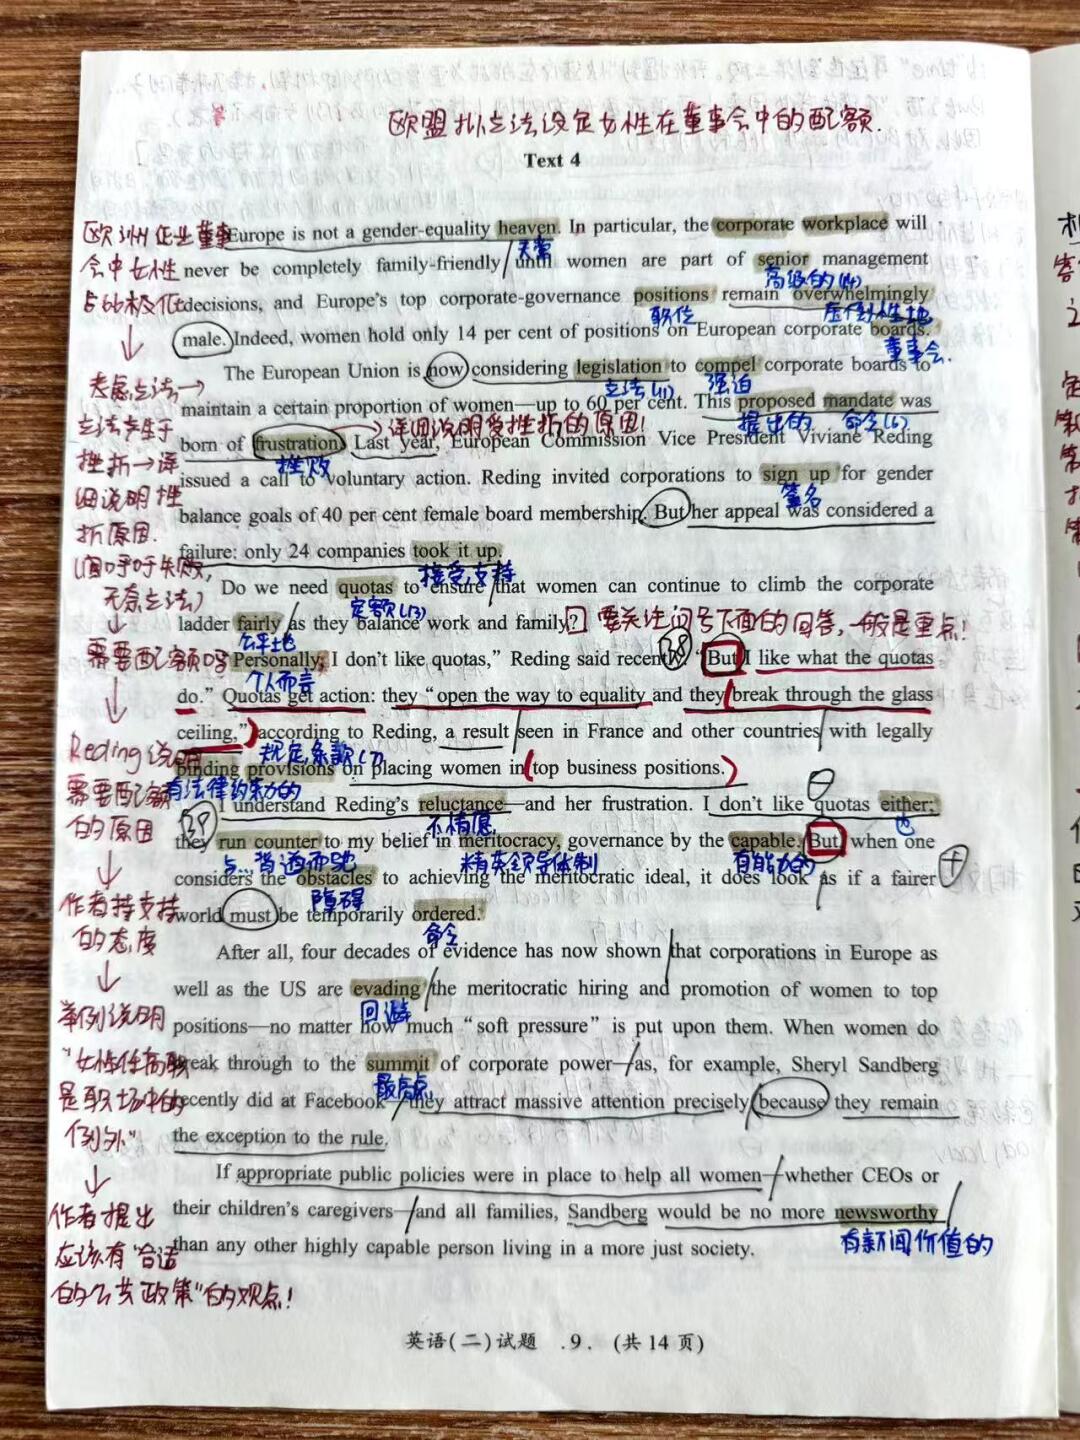 欧盟拟立法设定女性在董事会中的配额.
Text 4
欧洲企业董事
Europe is not a gender-equality heaven. In particular, the corporate workplace will
天堂
会中女性
never be completely family-friendly until women are part of senior management
高级的(14)
占的极低
decisions, and Europe's top corporate-governance positions remain overwhelmingly
职位
压倒性地
male. Indeed, women hold only 14 per cent of positions on European corporate boards.
董事会.
The European Union is now considering legislation to compel corporate boards to
考虑立法→
立法(11)
强迫
maintain a certain proportion of women—up to 60 per cent. This proposed mandate was
立法产生于
提出的
命令(6)
born of frustration. Last year, European Commission Vice President Viviane Reding
→详细说明受挫折的原因!
挫折→详
挫败
issued a call to voluntary action. Reding invited corporations to sign up for gender
细说明挫
签名
balance goals of 40 per cent female board membership. But her appeal was considered a
折原因.
failure: only 24 companies took it up.
(呼吁失败,
接受,支持
Do we need quotas to ensure that women can continue to climb the corporate
无奈立法)
定额(13)
ladder fairly as they balance work and family?
要关注问号下面的回答,一般是重点!
公平地
38
需要配额吗
"Personally, I don't like quotas," Reding said recently. "But I like what the quotas
个人而言
do." Quotas get action: they "open the way to equality and they break through the glass
ceiling," according to Reding, a result seen in France and other countries with legally
Reding说明
规定,条款(7)
binding provisions on placing women in top business positions.
需要配额
有法律约束力的
I understand Reding's reluctance—and her frustration. I don't like quotas either;
的原因
39
不情愿
也
they run counter to my belief in meritocracy, governance by the capable. But when one
与..背道而驰
精英领导体制
有能力的
considers the obstacles to achieving the meritocratic ideal, it does look as if a fairer
障碍
作者持支持
world must be temporarily ordered.
的态度
命令
After all, four decades of evidence has now shown that corporations in Europe as
well as the US are evading the meritocratic hiring and promotion of women to top
举例说明
回避
positions—no matter how much "soft pressure" is put upon them. When women do
"女性任高职
break through to the summit of corporate power—as, for example, Sheryl Sandberg
最高点
是职场中的
recently did at Facebook—they attract massive attention precisely because they remain
例外"
the exception to the rule.
If appropriate public policies were in place to help all women—whether CEOs or
作者提出
their children's caregivers—and all families, Sandberg would be no more newsworthy
有新闻价值的
应该有"合适
than any other highly capable person living in a more just society.
的公共政策"的观点!
英语(二)试题 .9. (共14页)